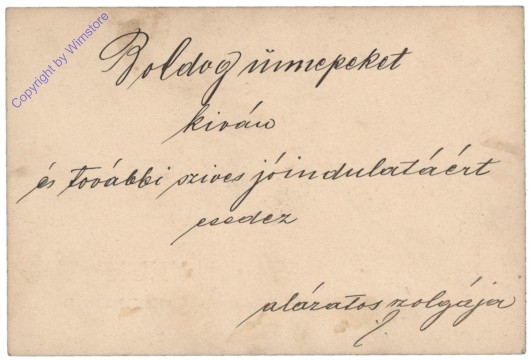 Copyright by Wimstore
Boldog ünnepeket
kiván
és további szives jóindulatáért
esedez
alázatos szolgája